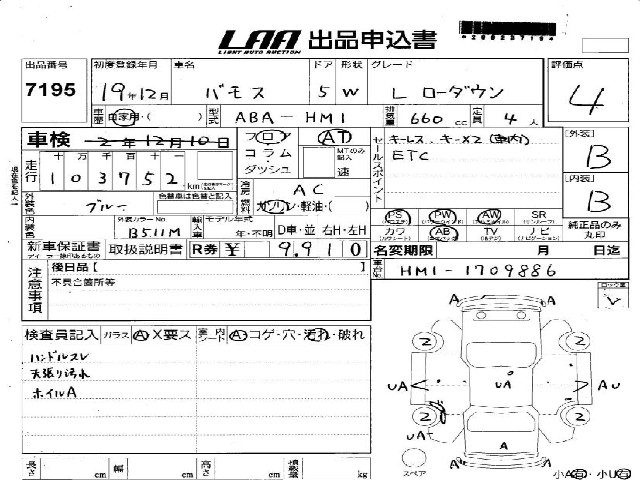 LAA 出品申込書
LIGHT AUTO AUCTION
出品番号 初度登録年月 車名 ドア 形状 グレード 評価点
7195 19年12月 バモス 5 W L ローダウン 4
車歴 自家用・( ) 型式 ABA-HM1 排気量 660 cc 定員 4人
車検 2年12月10日 フロア AT キーレス、キー×2(車内) [外装]
走行 十万千百十一 コラム MTのみ記入 セールスポイント ETC B
103752 ダッシュ 速
外装色 ブルー 色替車は色替と記入 冷房 AC [内装]
燃料 ガソリン・軽油・( ) B
内装色 外装カラーNo B511M 輸入車 モデル年式 年・不明 D車・並 右H・左H PS PW AW SR
カワ AB TV ナビ 純正品のみ丸印
新車保証書 取扱説明書 R券 ¥ 9910 名変期限 月 日迄
注意事項 後日品【 】 車台No HM1-1709886
不具合箇所等
検査員記入 ガラス A・X要ス 室内 シート A・コゲ・穴・汚れ・破れ
ハンドルスレ
天張り汚れ
ホイルA
A A
2 2
UA UA AU
2 2
UA A A
A
スペア 小A・小U
長さ cm 幅 cm 高さ cm 積載量 kg